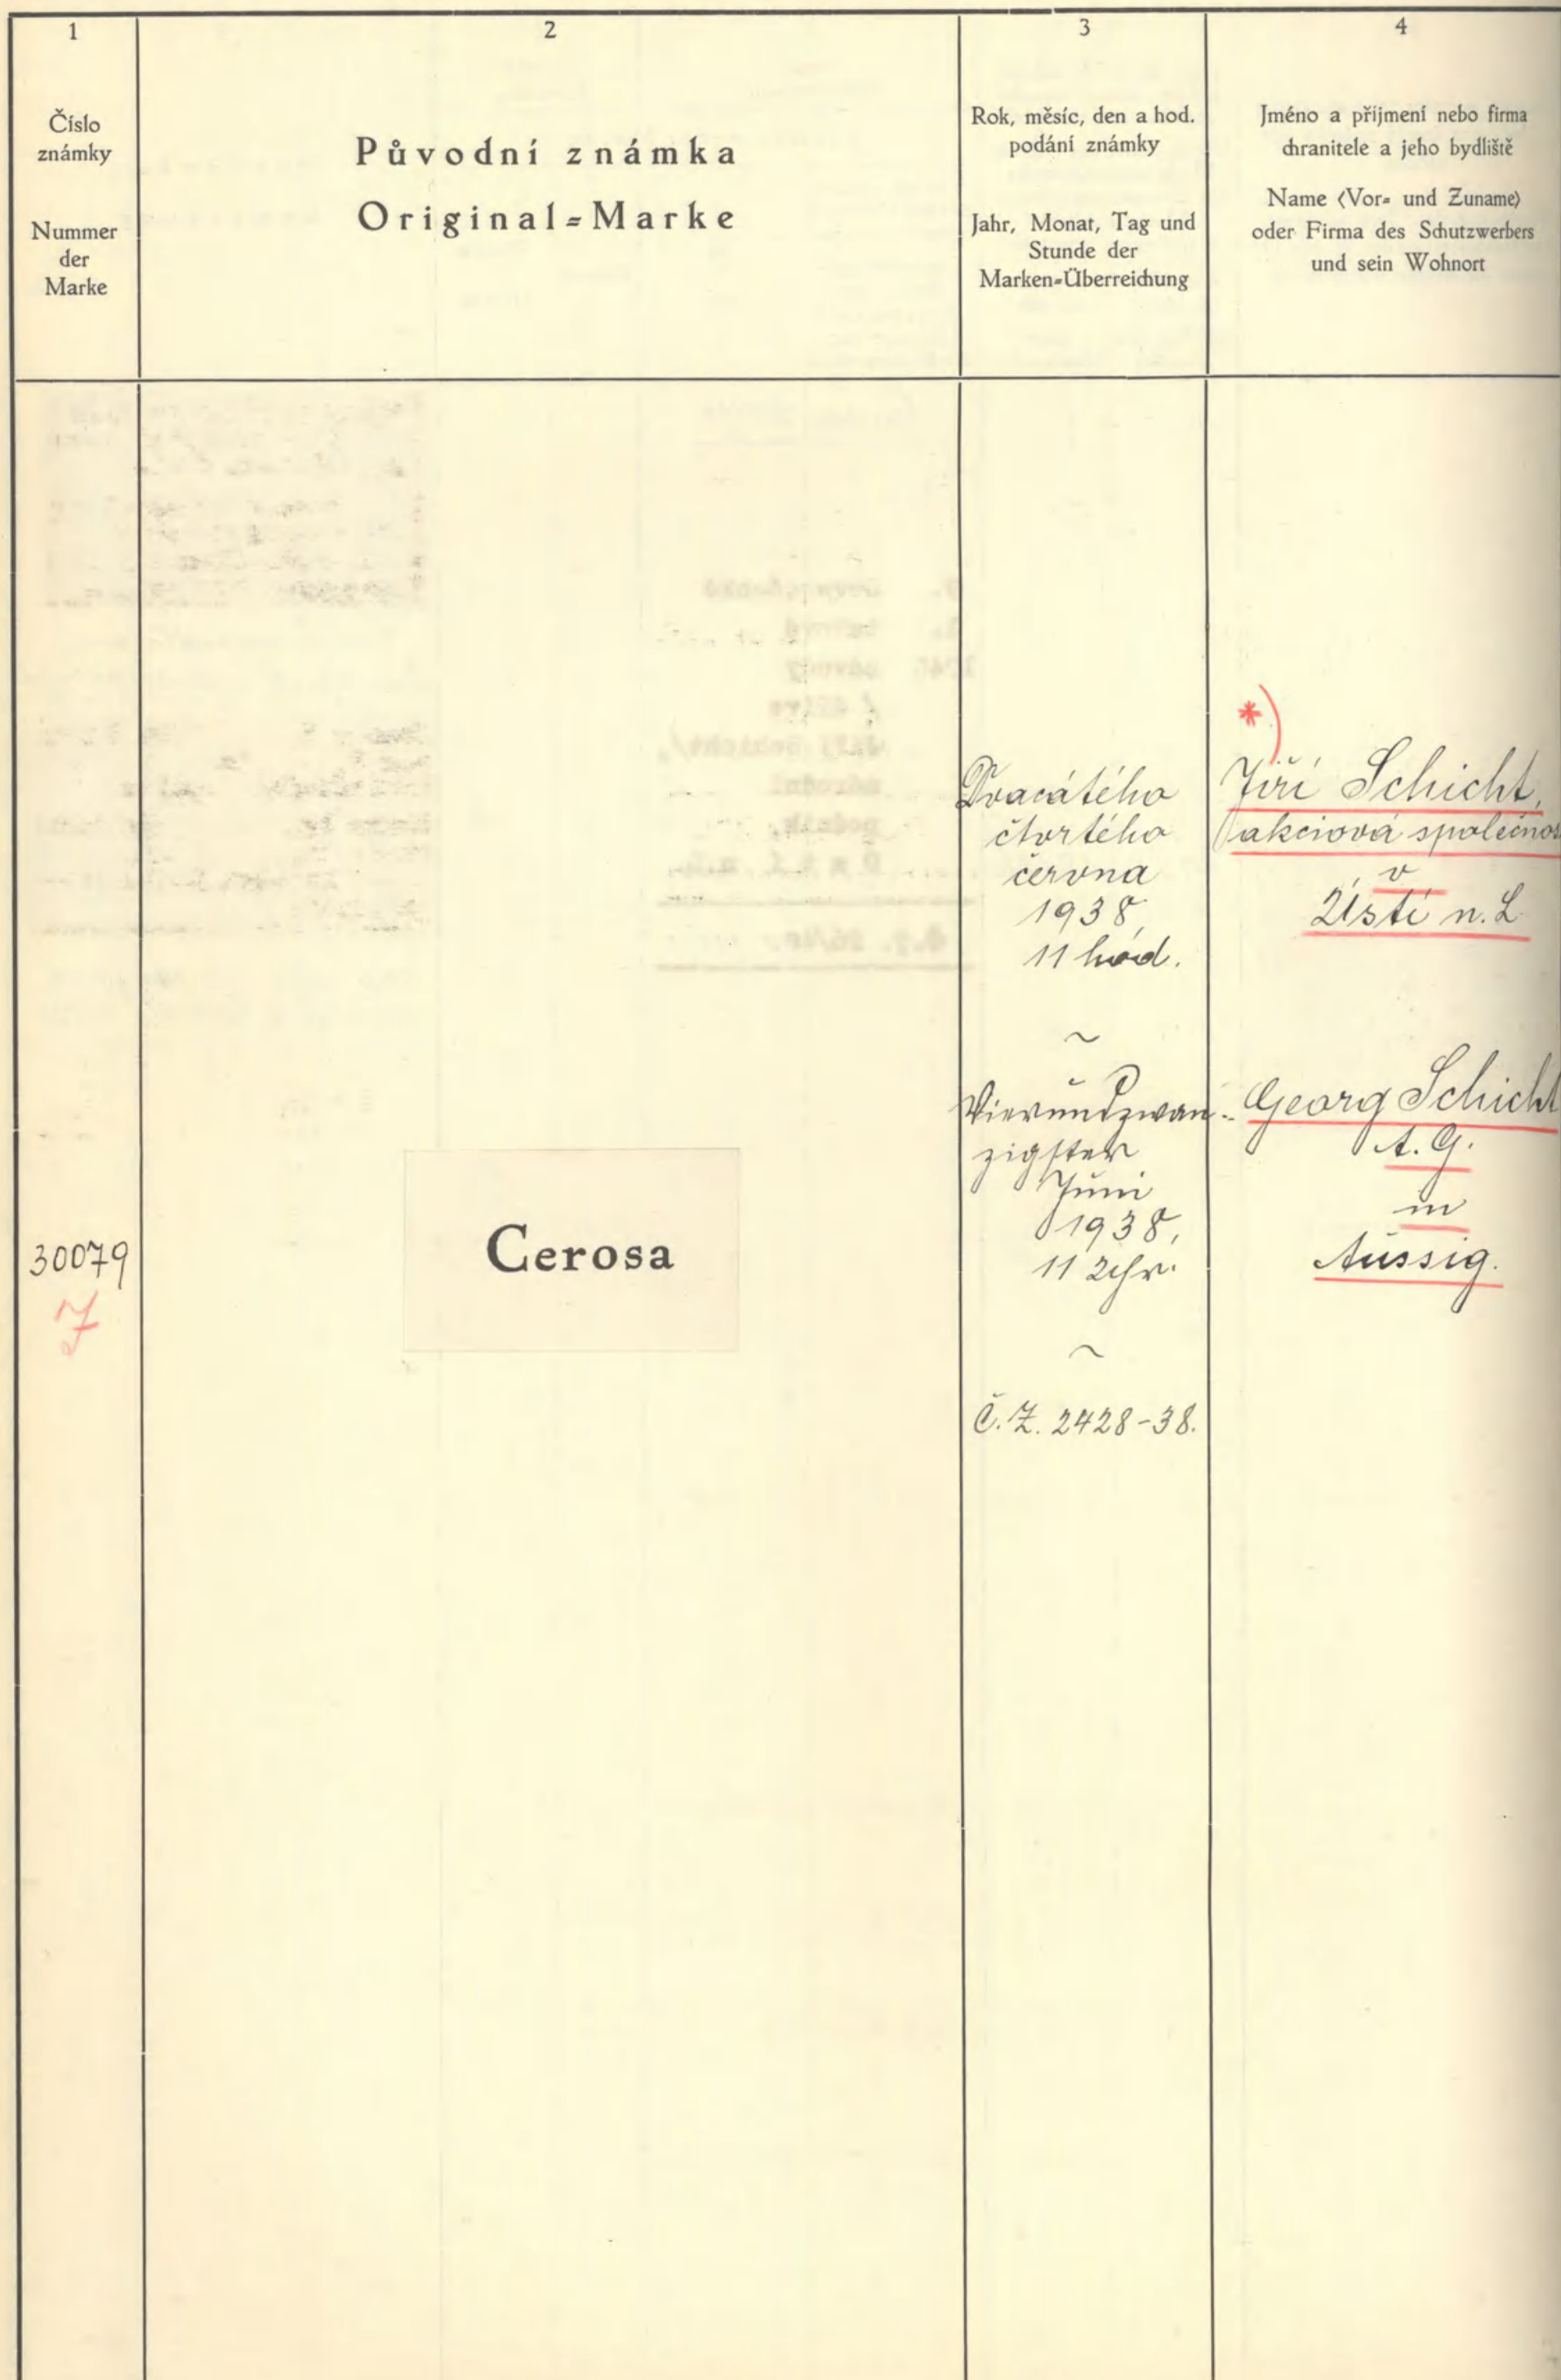 1
Číslo
známky
Nummer
der
Marke
2
Původní známka
Original=Marke
3
Rok, měsíc, den a hod.
podání známky
Jahr, Monat, Tag und
Stunde der
Marken=Überreichung
4
Jméno a příjmení nebo firma
chranitele a jeho bydliště
Name (Vor= und Zuname)
oder Firma des Schutzwerbers
und sein Wohnort
30079
7
Cerosa
Dvacátého
čtvrtého
června
1938,
11 hod.
~
Vierundzwan-
zigster
Juni
1938,
11 Uhr.
~
Č.Z. 2428-38.
*)
Jiří Schicht,
akciová společnos
v
Ústí n. L.
Georg Schicht
A. G.
in
Aussig.